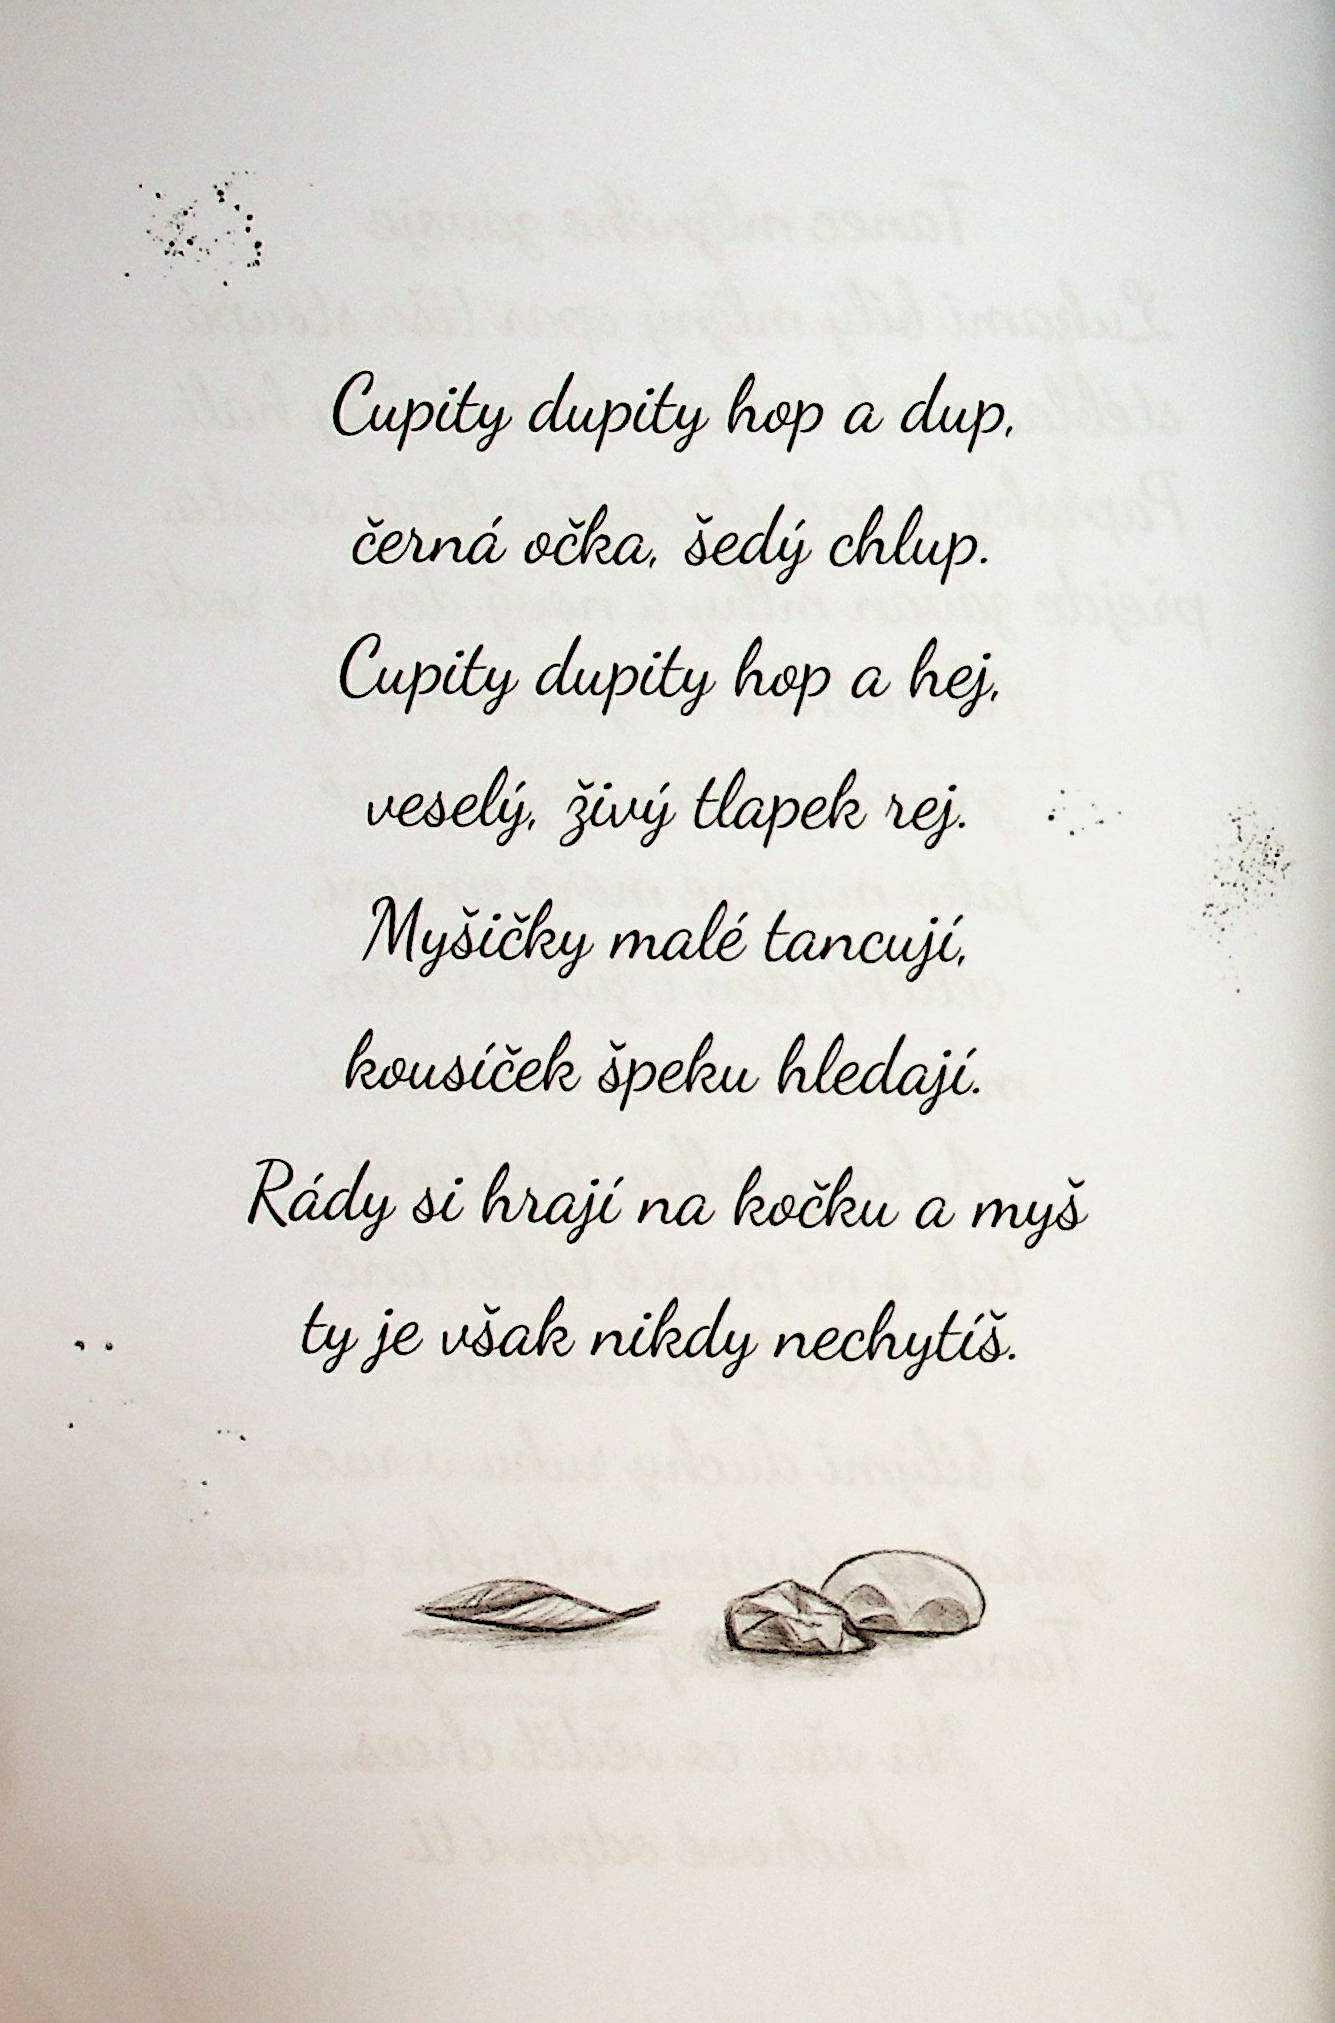 Cupity dupity hop a dup,
černá očka, šedý chlup.
Cupity dupity hop a hej,
veselý, živý tlapek rej.
Myšičky malé tancují,
kousíček špeku hledají.
Rády si hrají na kočku a myš
ty je však nikdy nechytíš.